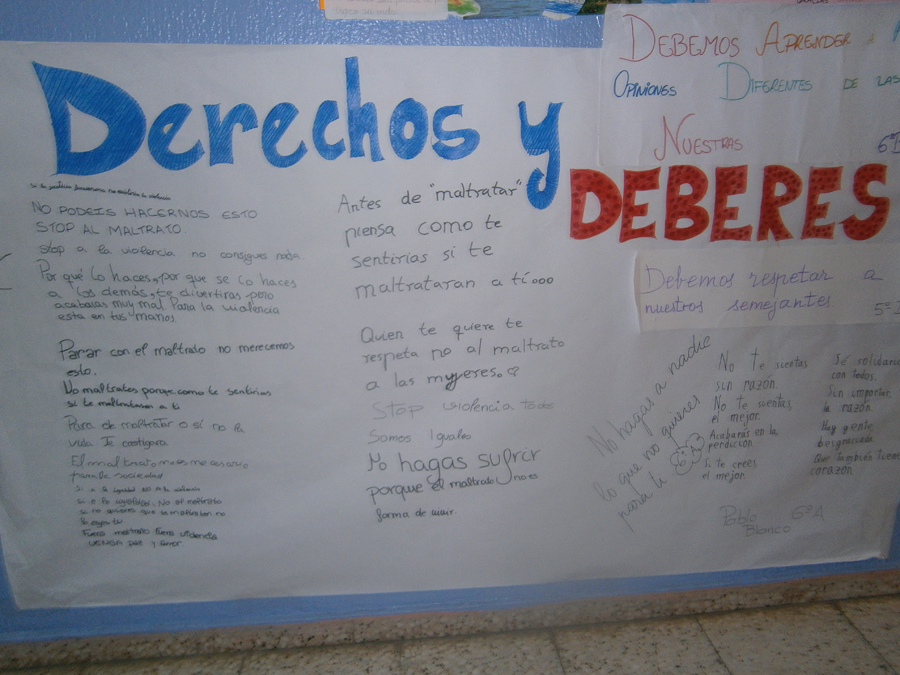 Derechos y
DEBERES
DEBEMOS APRENDER
OPINIONES DIFERENTES DE LAS
NUESTRAS
6º
Debemos respetar a
nuestros semejantes.
5º
NO PODEIS HACERNOS ESTO
STOP AL MALTRATO.
Stop a la violencia no consigues nada
Por qué lo haces, por que se lo haces
a los demás, te divertiras pero
acabaras muy mal. Para la violencia
esta en tus manos
Parar con el maltrado no merecemos
esto.
No maltrates porque como te sentirias
si te maltrataran a ti
Para de maltratar o si no la
vida Te castigara
El maltrato no es necesario
para la sociedad
Si a la igualdad NO A la violencia
si a la igualdad. No al maltrato
Fuera maltrato Fuera violencia
VENGA paz y Amor.
Antes de "maltratar"
piensa como te
sentirias si te
maltrataran a tiooo
Quien te quiere te
respeta no al maltrato
a las mujeres.
Stop violencia todos
Somos Iguales
No hagas sufrir
porque el maltrado no es
forma de vivir.
No hagas a nadie
lo que no quieres
para ti
No te sientas
sin razón.
No te sientas
el mejor.
Acabarás en la
perdición.
Si te crees
el mejor.
Sé solidario
con todos.
Sin importar
la razón.
Hay gente
desgraciada
Que también tiene
corazón.
Pablo 6º A
Blanco